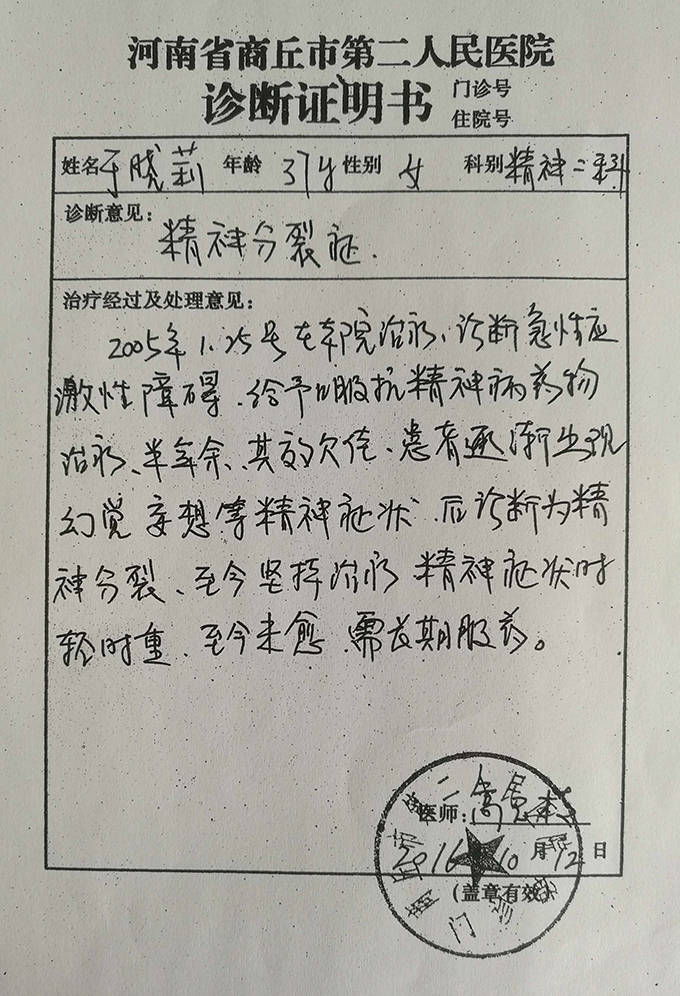 河南省商丘市第二人民医院
诊断证明书
门诊号
住院号
姓名 于晓莉 年龄 37岁 性别 女 科别 精神二科
诊断意见：
精神分裂症.
治疗经过及处理意见：
2005年1.25号在本院治疗、诊断急性应
激性障碍、给予口服抗精神病药物
治疗、半年余、其效欠佳、患者逐渐出现
幻觉妄想等精神症状、后诊断为精
神分裂、至今坚持治疗 精神症状时
轻时重、至今未愈 需长期服药。
医师：
2016 10月12日
(盖章有效)